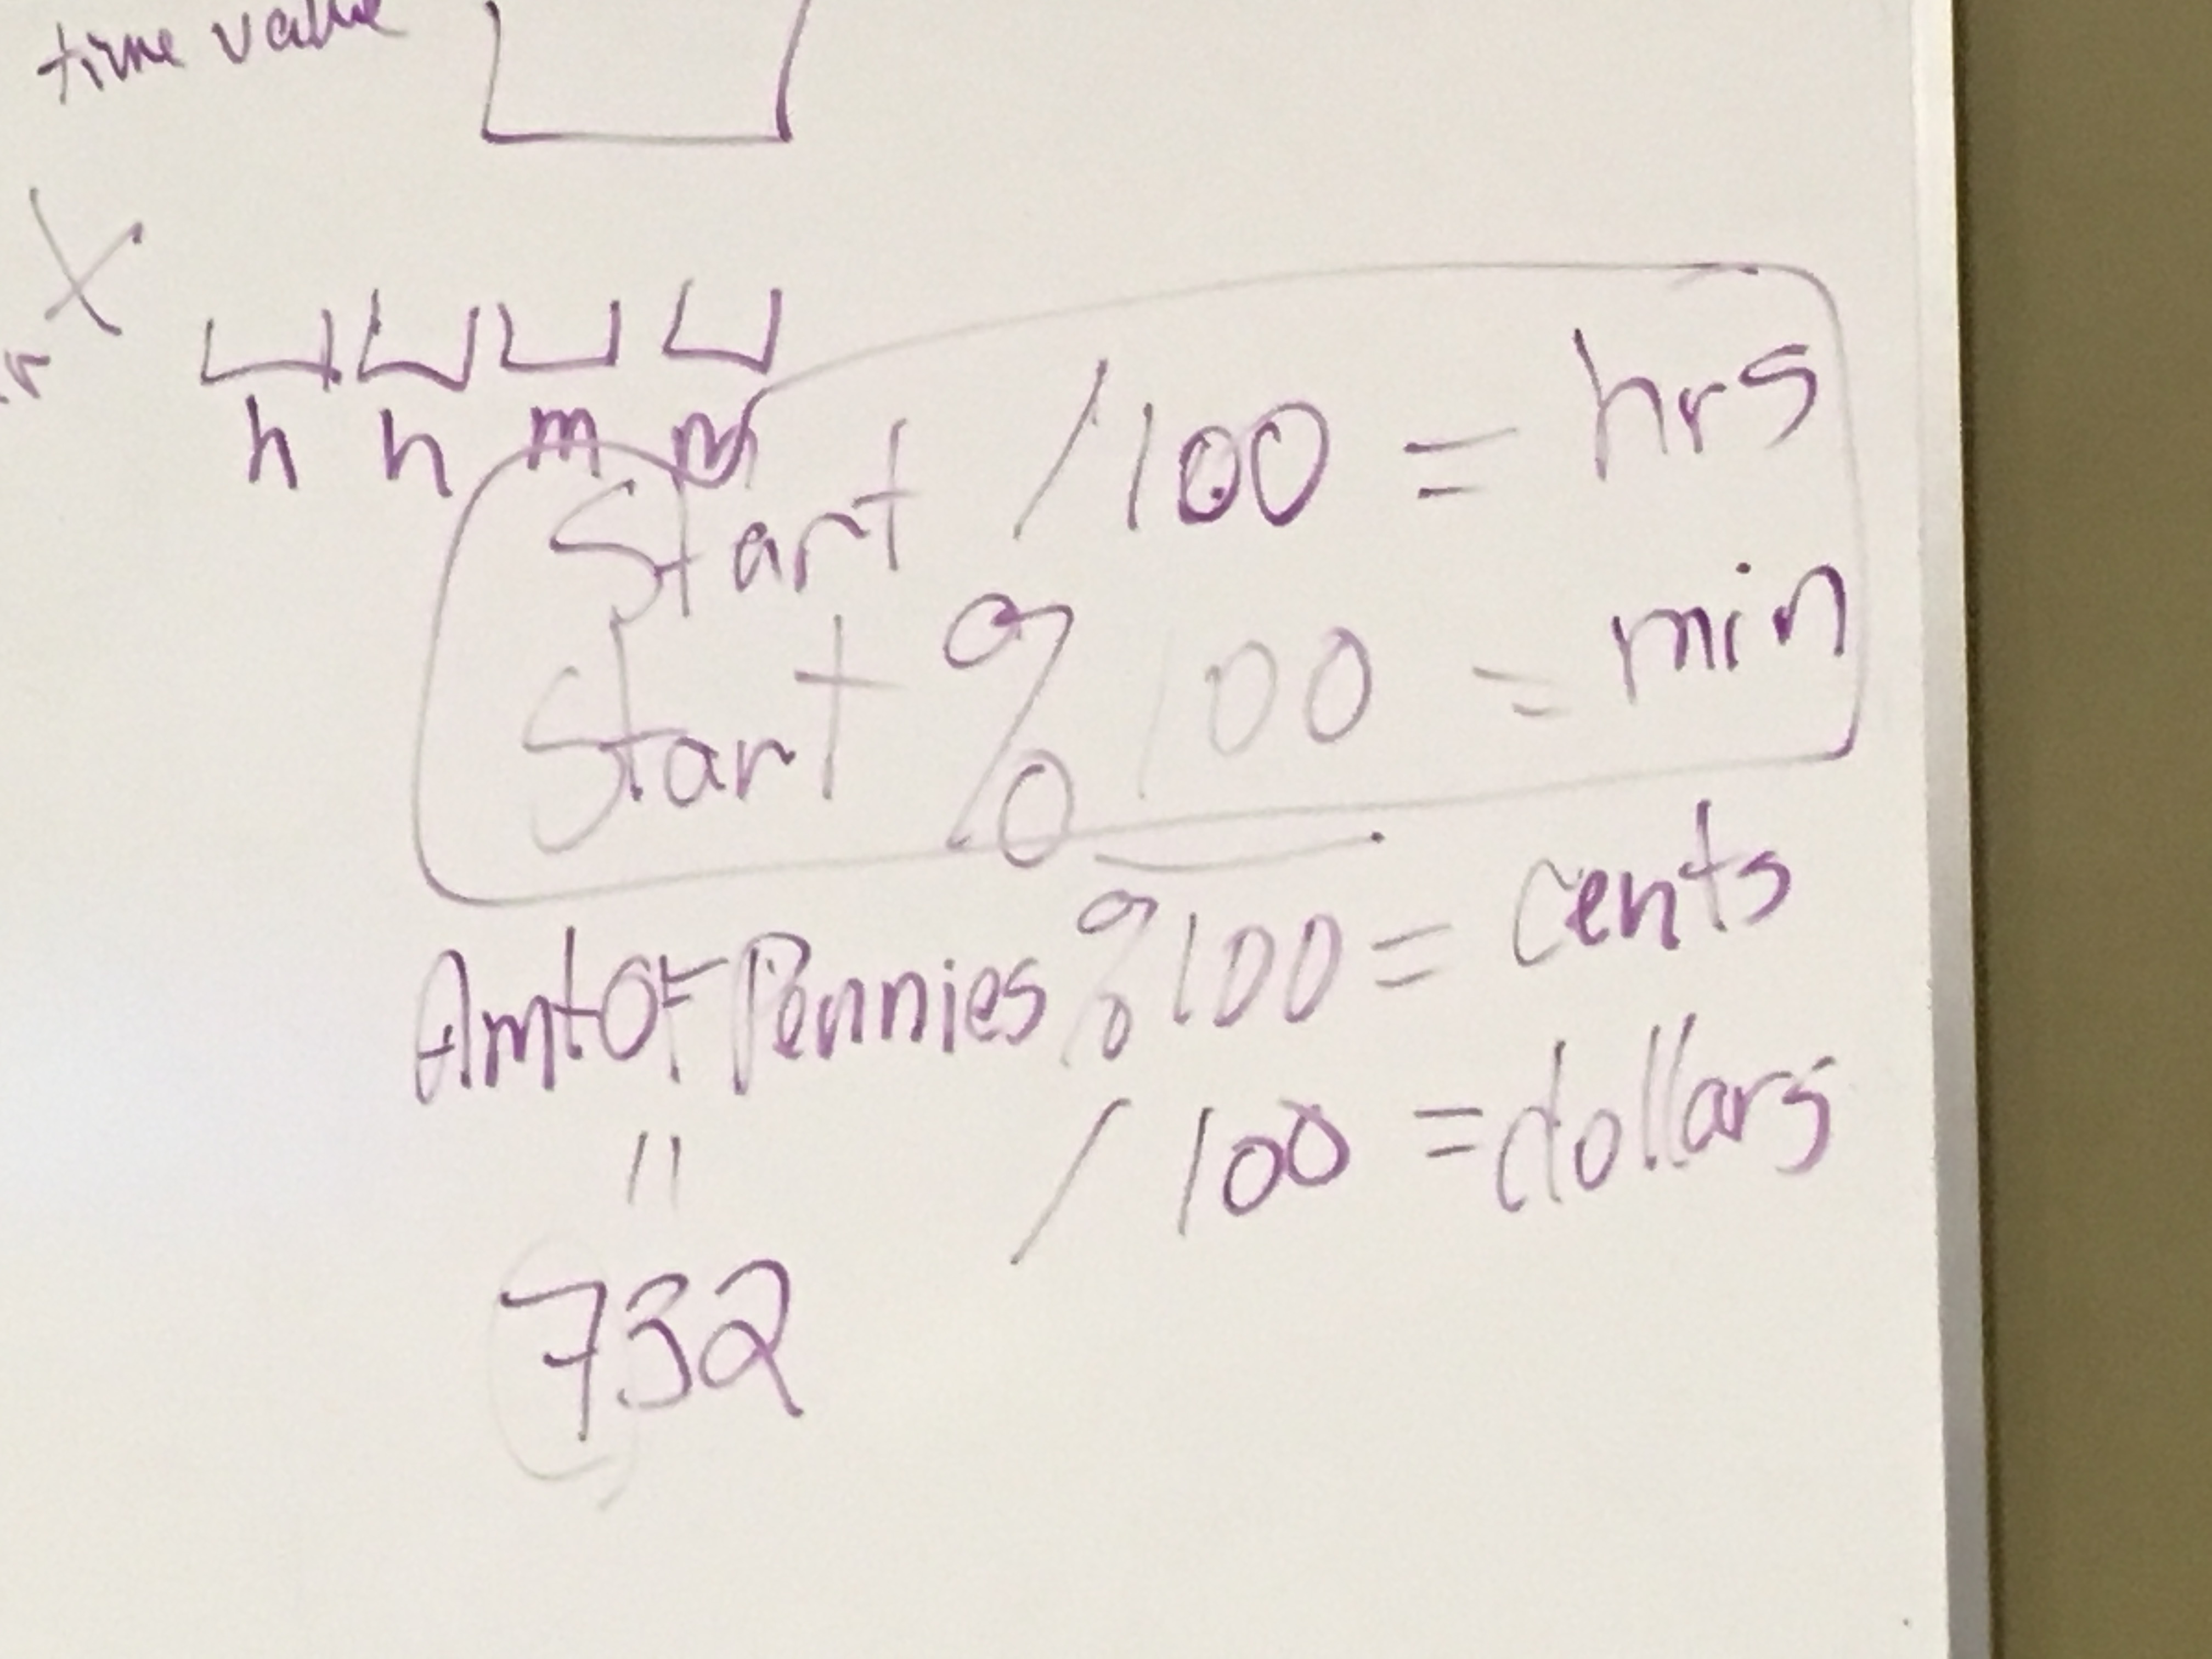 time value
X
h h m m
Start / 100 = hrs
Start % 100 = min
AmtOf Pennies % 100 = cents
/ 100 = dollars
=
732